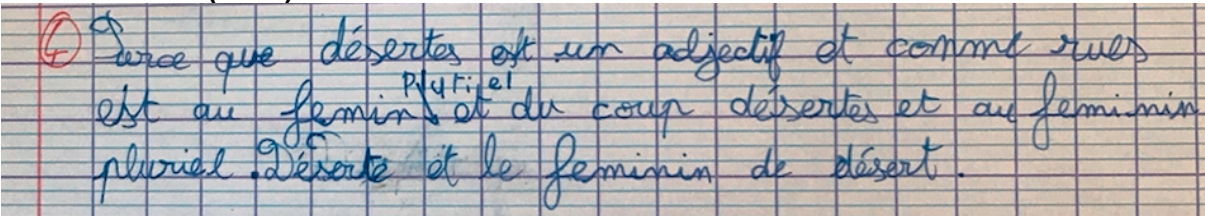 ④ Parce que désertes est un adjectif et comme rues
est au femin pluriel et du coup désertes et au feminin
pluriel. Déserte et le feminin de désert.